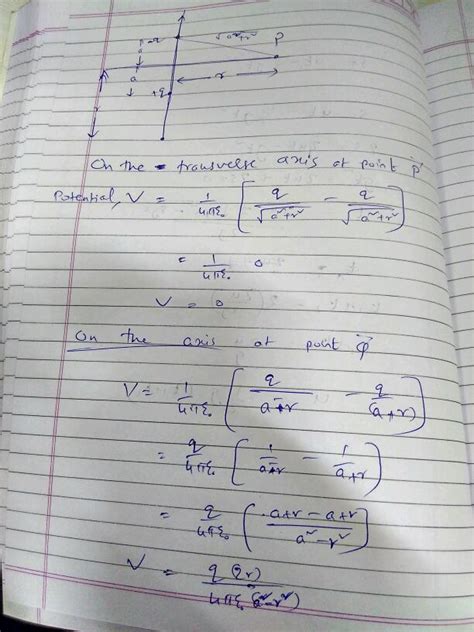 -q √a²+r² P
a
a r
+q
On the transverse axis at point P
Potential, V = 1/4πε₀ [ q/√a²+r² - q/√a²+r² ]
= 1/4πε₀ 0
V = 0
On the axis at point
V = 1/4πε₀ [ q/a-r - q/(a+r) ]
= q/4πε₀ [ 1/a-r - 1/a+r ]
= q/4πε₀ ( a+r - a+r / a²-r² )
V = q (2r) / 4πε₀ (a²-r²)